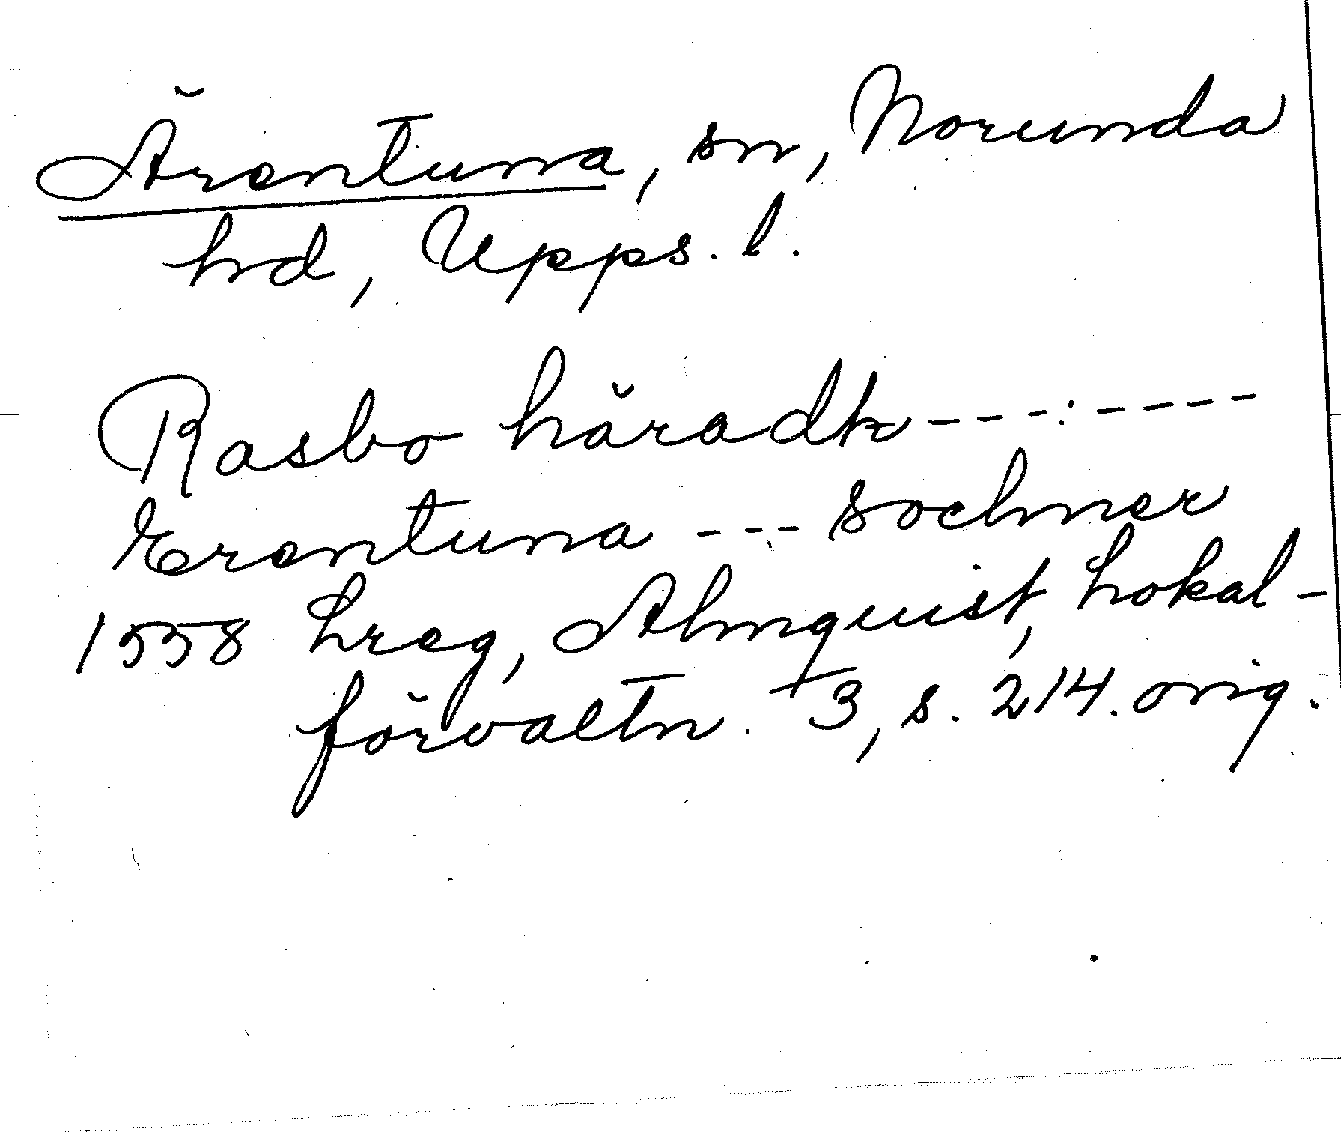 Ärentuna, sn, Norunda
hd, Upps. l.
Rasbo häradh ---:----
Erentuna --- sochner
1558 hreg, Almquist, Lokal-
förvaltn. 3, s. 214. orig.